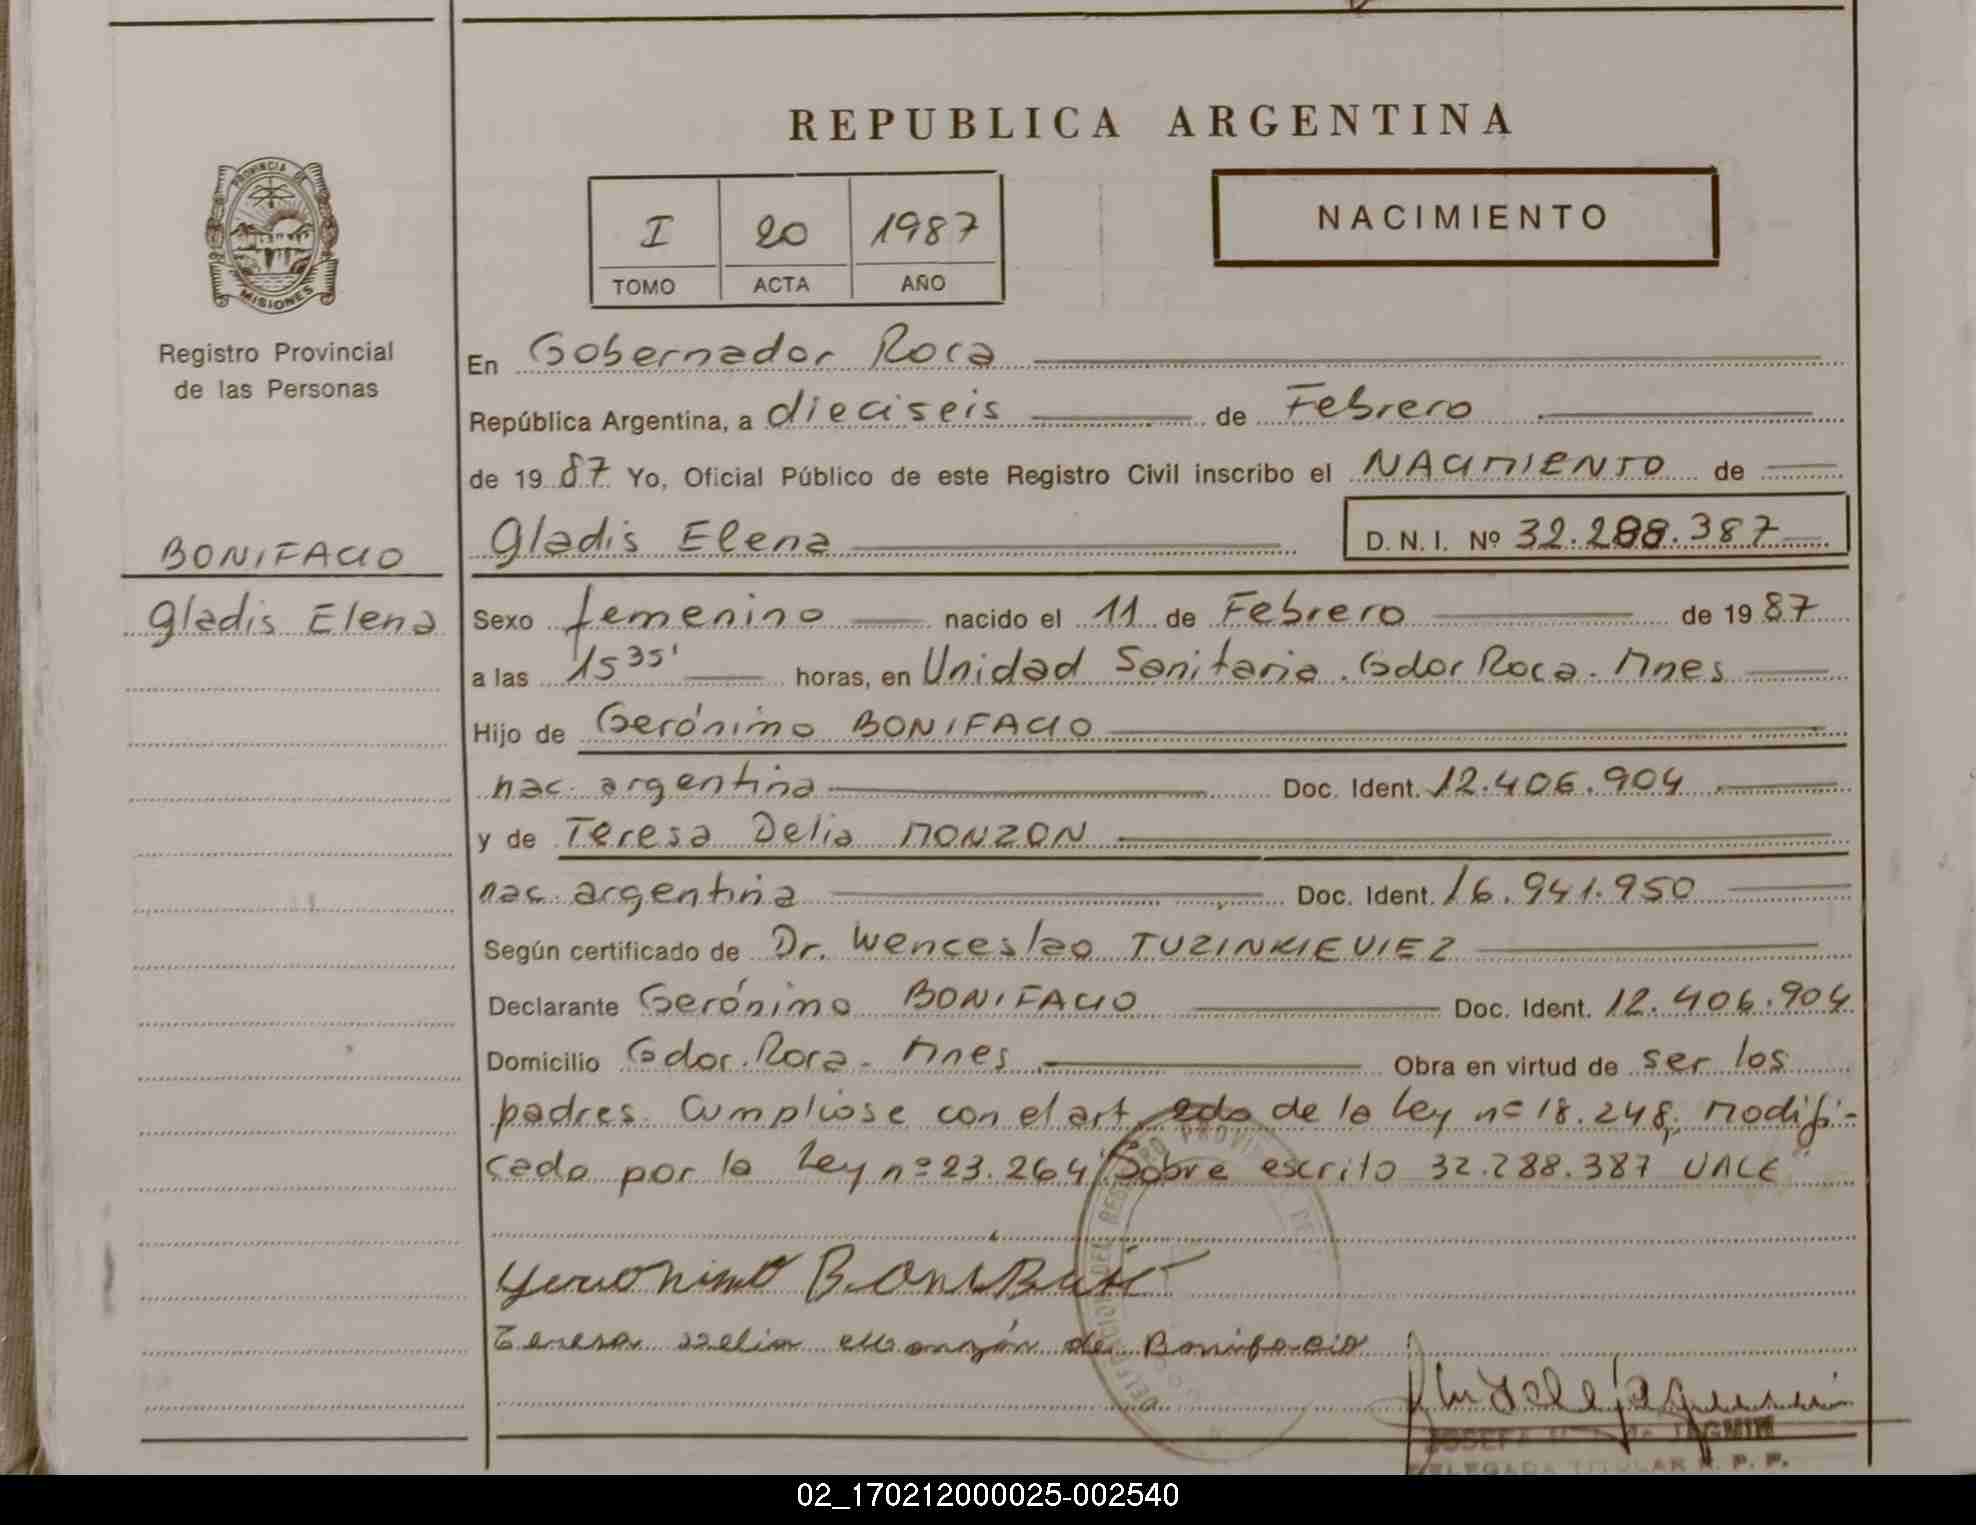 REPUBLICA ARGENTINA
PROVINCIA DE
MISIONES
Registro Provincial
de las Personas
I 20 1987
TOMO ACTA AÑO
NACIMIENTO
En Gobernador Roca
República Argentina, a dieciseis de Febrero
de 1987 Yo, Oficial Público de este Registro Civil inscribo el NACIMIENTO de
BONIFACIO
Gladis Elena
Gladis Elena D.N.I. Nº 32.288.387
Sexo femenino nacido el 11 de Febrero de 1987
a las 15 35' horas, en Unidad Sanitaria. Gdor Roca. Mnes
Hijo de Gerónimo BONIFACIO
nac. argentina Doc. Ident. 12.406.904
y de Teresa Delia MONZON
nac. argentina Doc. Ident. 16.941.950
Según certificado de Dr. Wenceslao TUZINKIEVIEZ
Declarante Gerónimo BONIFACIO Doc. Ident. 12.406.904
Domicilio Gdor. Roca - Mnes Obra en virtud de ser los
padres. Cumpliose con el art. 2do de la Ley nº 18.248, modifi-
cado por la Ley nº 23.264 Sobre escrito 32.288.387 VALE
Geronimo
Teresa Delia Monzón de Bonifacio
JOSEFA JAGMIN
DELEGADA TITULAR R. P. P.
02_170212000025-002540